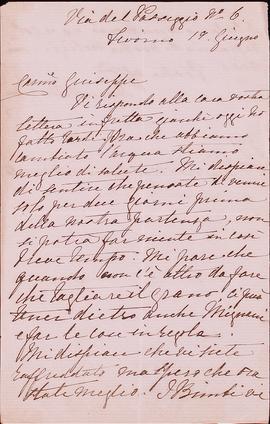 Via del Passeggio No 6.
Livorno 17 Giugno
Carmo Giuseppe
Vi rispondo alla cara vostra
lettera in fretta perchè oggi ho
fatto tardi. Ora che abbiamo
cambiato l'acqua stiamo
meglio di salute. Mi dispiace
di sentire che pensate di venire
solo per due giorni prima
della nostra partenza, non
si potrà far niente in così
breve tempo. Mi pare che
quando non c'è altro da fare
che tagliare il grano, ci può
tener dietro anche
e far le cose in regola.
Mi dispiace che vi siete
raffreddato ma spero che ora
state meglio. I Bimbi vi